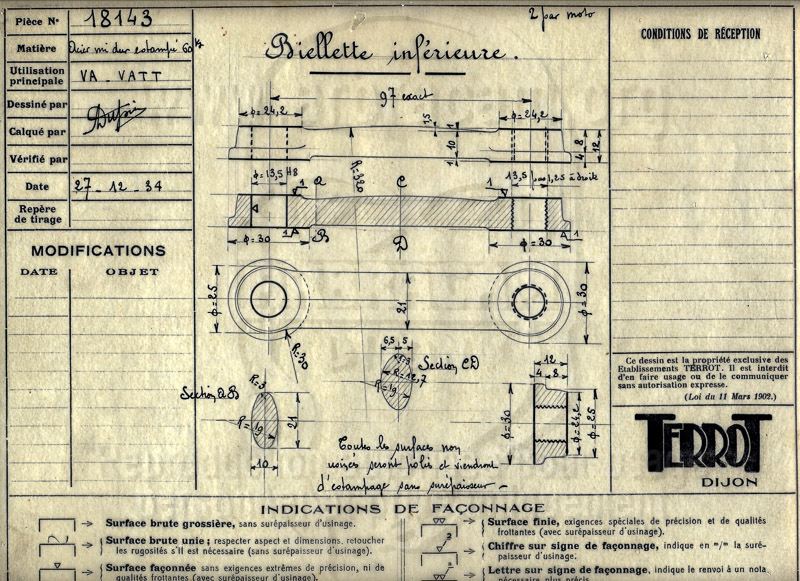 Pièce N° 18143
Matière Acier mi dur estampé 60 k
Utilisation principale VA - VATT
Dessiné par
Calqué par
Vérifié par
Date 27 - 12 - 34
Repère de tirage
MODIFICATIONS
DATE OBJET
2 par moto
Biellette inférieure.
97 exact
φ=24,2
φ=24,2
1,5
1
10
1
4 8
12
R=320
φ=13,5 H8
1
a
C
1
13,5 pas 1,25 à droite
φ=30
1
B
D
φ=30
1
φ=25
21
φ=30
R=30
6,5 5
Section CD
R=12,7
R=19
Section a B
R=3
R=19
21
10
12
4 8
φ=30
φ=24,2
φ=25
Toutes les surfaces non
usinées seront polies et viendront
d'estampage sans surépaisseur -
CONDITIONS DE RÉCEPTION
Ce dessin est la propriété exclusive des
Etablissements TERROT. Il est interdit
d'en faire usage ou de le communiquer
sans autorisation expresse.
(Loi du 11 Mars 1902.)
TERROT
DIJON
INDICATIONS DE FAÇONNAGE
Surface brute grossière, sans surépaisseur d'usinage.
Surface brute unie; respecter aspect et dimensions, retoucher
les rugosités s'il est nécessaire (sans surépaisseur d'usinage).
Surface façonnée sans exigences extrêmes de précision, ni de
qualités frottantes (avec surépaisseur d'usinage).
Surface finie, exigences spéciales de précision et de qualités
frottantes (avec surépaisseur d'usinage).
Chiffre sur signe de façonnage, indique en "/m la suré-
paisseur d'usinage.
Lettre sur signe de façonnage, indique le renvoi à un nota
nécessaire plus précis